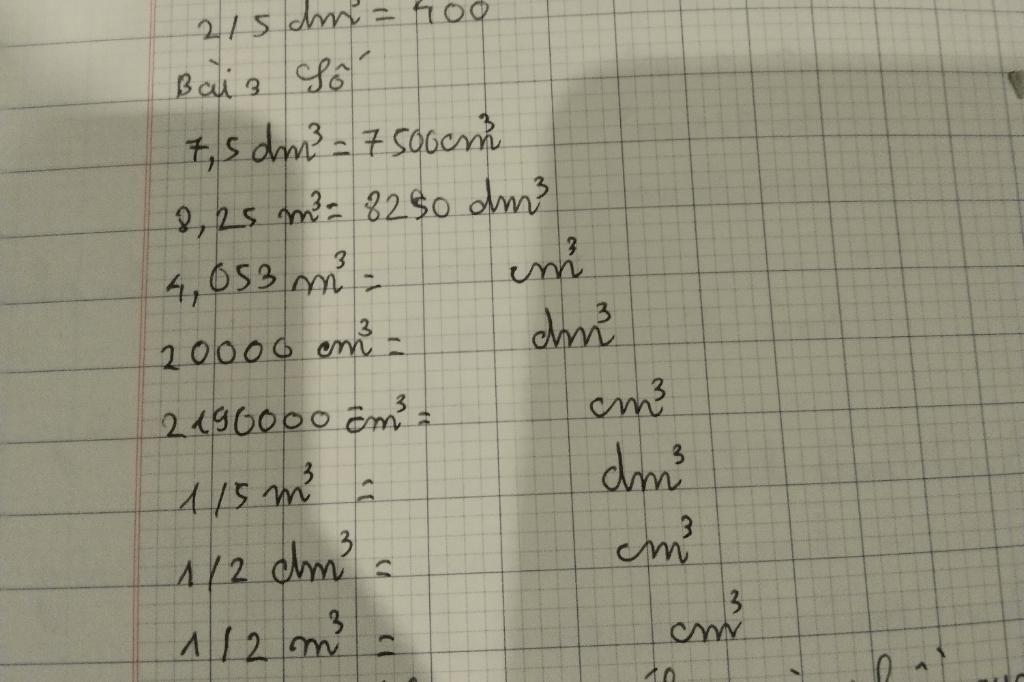 2/5 dm³ = 400
Bài 3 Số
7,5 dm³ = 7500cm³
8,25 m³ = 8250 dm³
4,053 m³ = cm³
20000 cm³ = dm³
2190000 cm³ = cm³
1/5 m³ = dm³
1/2 dm³ = cm³
1/2 m³ = cm³